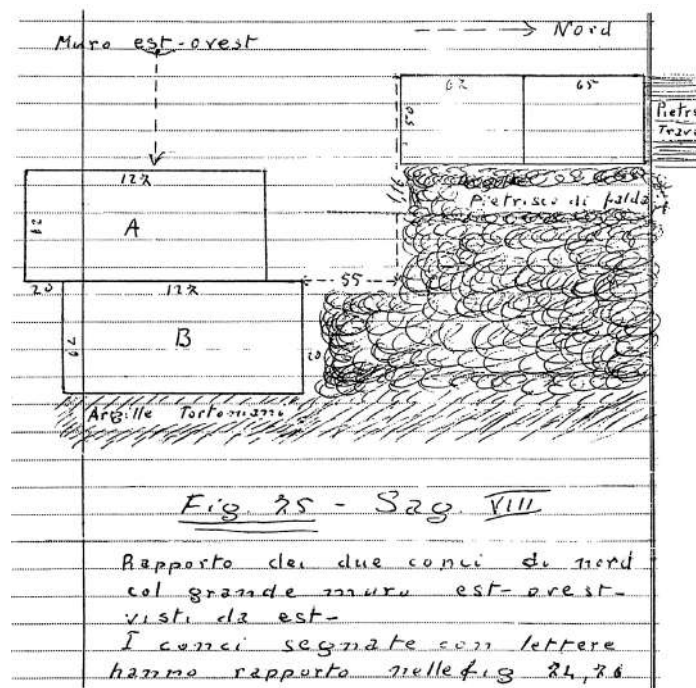 Nord
Muro est-ovest
62 65
50
Pietr
122
A
62
1,16
Pietrisco di falda
20 122 55
B
62
20
Argille Tortoniano
Fig. 25 - Sag. VIII
Rapporto dei due conci di nord
col grande muro est-ovest-
visti da est-
I conci segnate con lettere
hanno rapporto nelle fig 24, 26